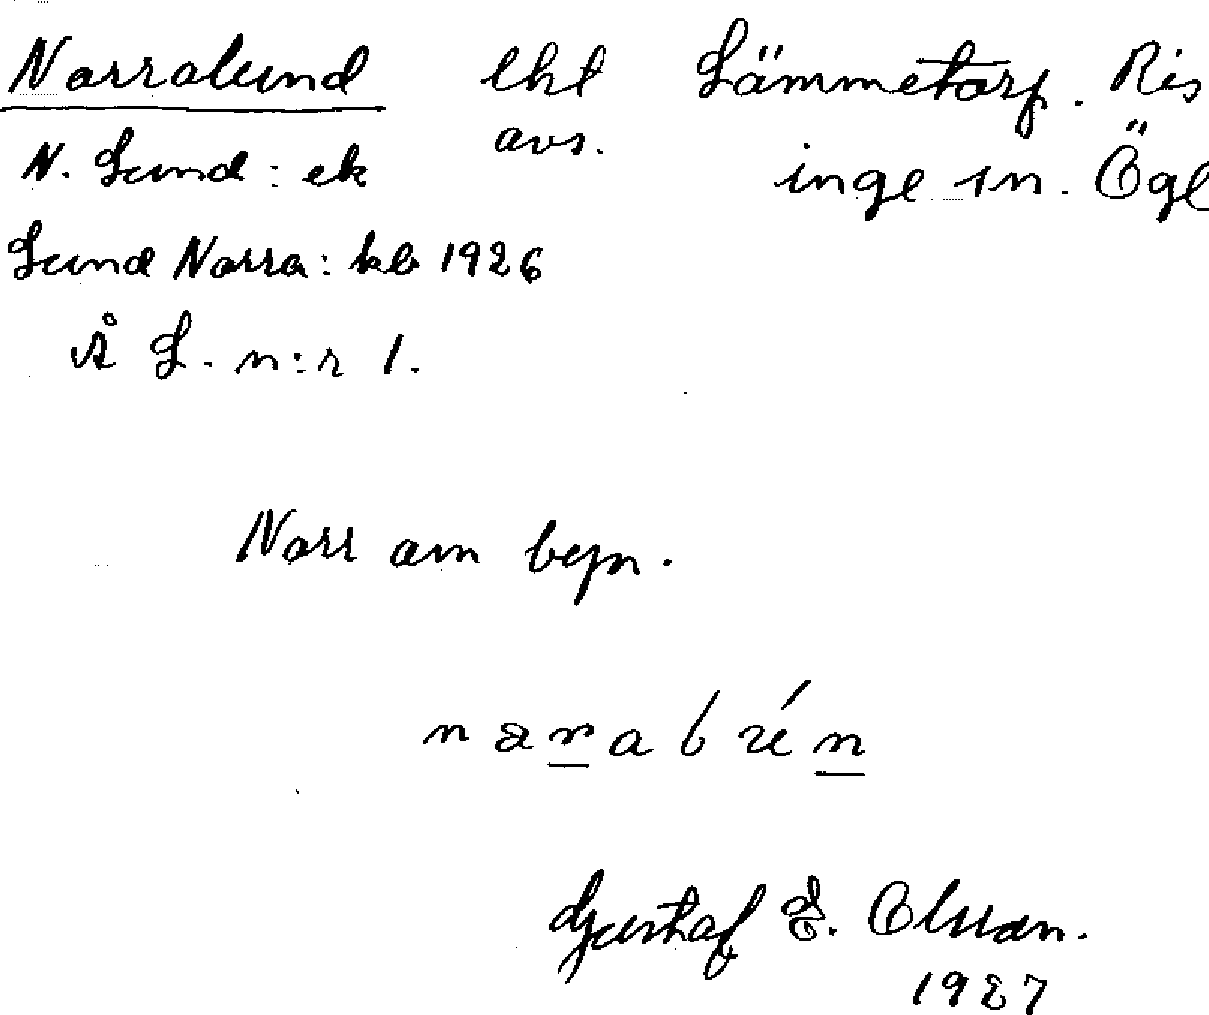 Norralund lht Lämmetorp. Ris
avs. inge sn. Ögl
N. Lund: ek
Lund Norra: kb 1926
Å L. n:r 1.
Norr om byn.
Gustaf E. Olsson.
1927